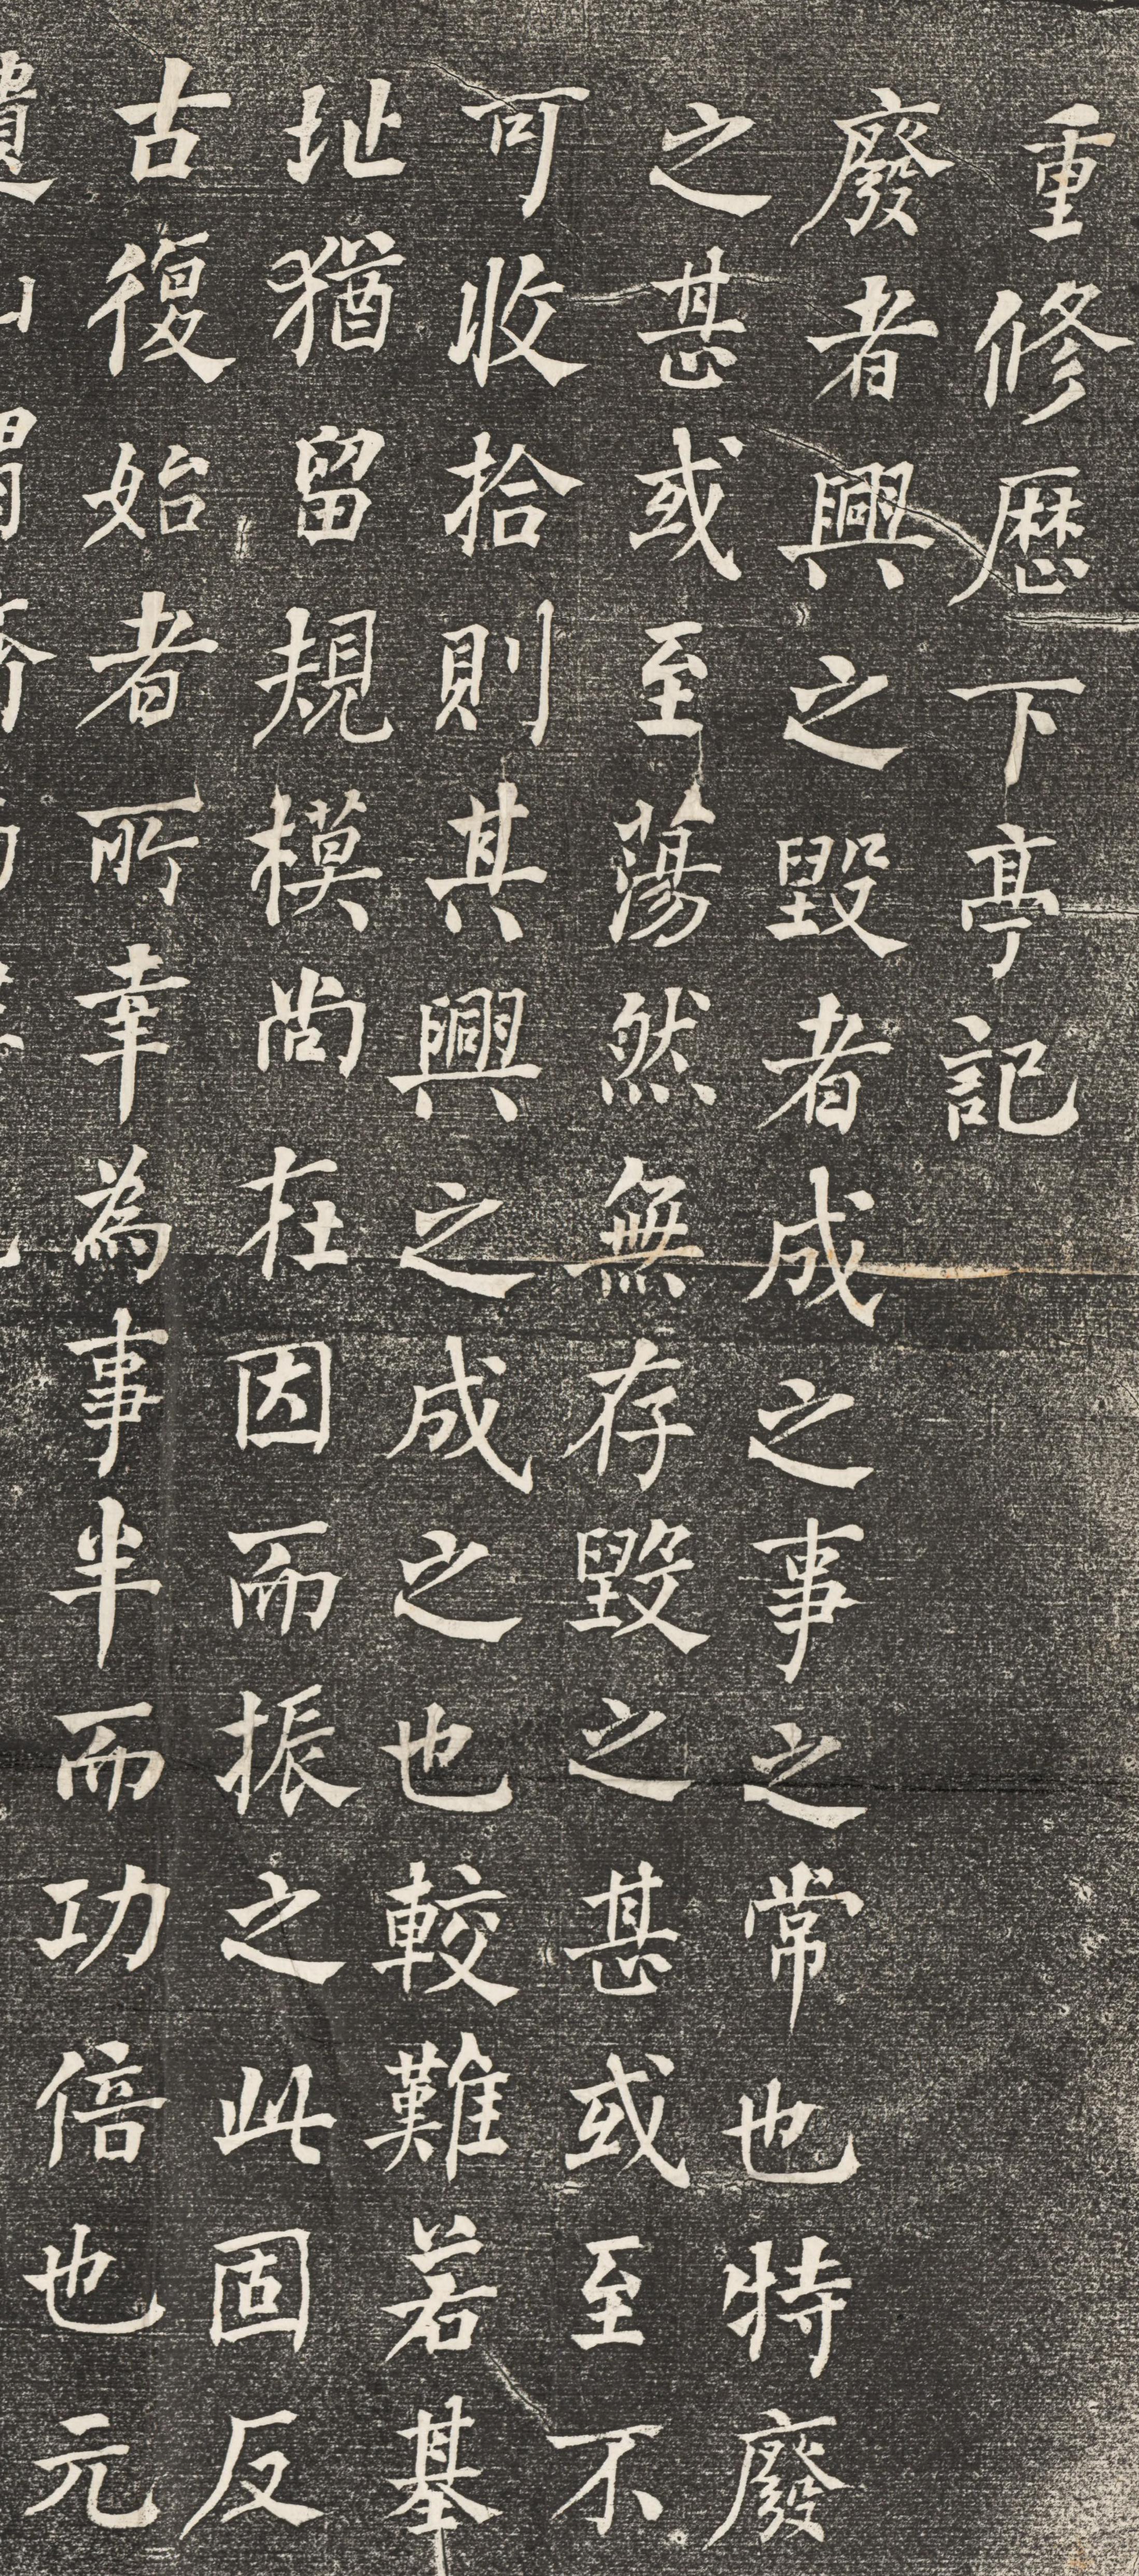 重修歷下亭記
廢者興之毀者成之事之常也特廢
之甚或至蕩然無存毀之甚或至不
可收拾則其興之成之也較難若基
址猶留規模尚在因而振之此固反
古復始者所幸為事半而功倍也元